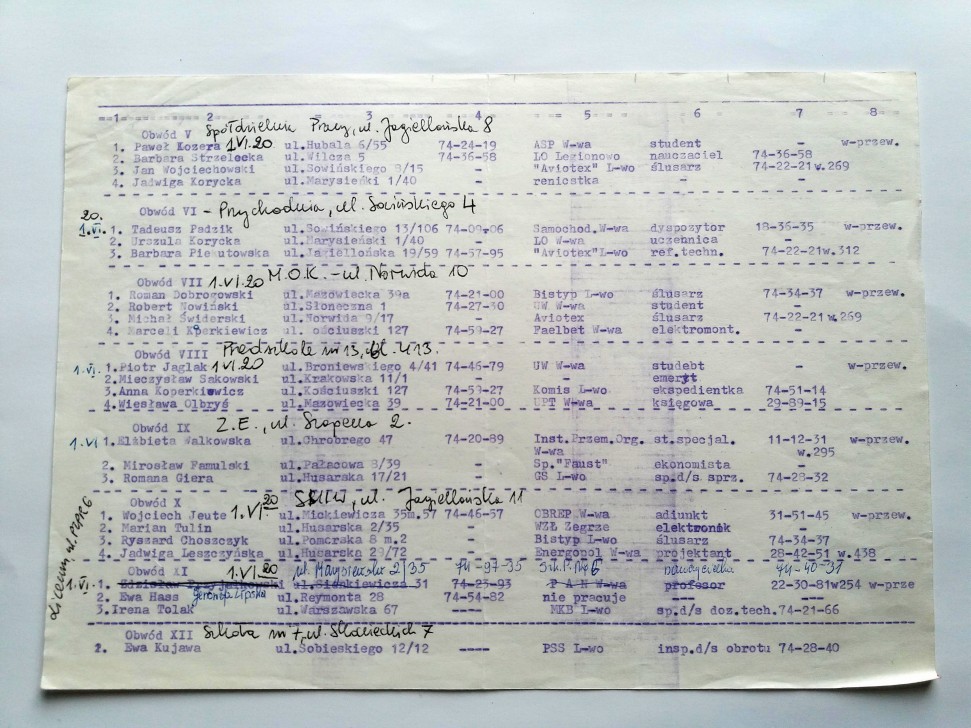 1 2 3 4 5 6 7 8
Obwód V Spółdzielnia Pracy, ul. Jagiellońska 8
1. Paweł Kozera 1.VI.20 ul.Hubala 6/55 74-24-19 ASP W-wa student - w-przew.
2. Barbara Strzelecka ul.Wilcza 5 74-36-58 LO Legionowo nauczaciel 74-36-58
3. Jan Wojciechowski ul.Sowińskiego 8/15 - "Aviotex" L-wo ślusarz 74-22-21w.269
4. Jadwiga Korycka ul.Marysieńki 1/40 - renicstka - -
20. Obwód VI - Przychodnia, ul. Sowińskiego 4
1.VI. 1. Tadeusz Padzik ul.Sowińskiego 13/106 74-09-06 Samochod.W-wa dyspozytor 18-36-35 w-przew.
2. Urszula Korycka ul.Marysieńki 1/40 - LO W-wa uczennica -
3. Barbara Piekutowska ul.Jagiellońska 19/59 74-57-95 "Aviotex"L-wo ref.techn. 74-22-21w.312
Obwód VII 1.VI.20 M.O.K. - ul. Norwida 10
1. Roman Dobrogowski ul.Mazowiecka 39a 74-21-00 Bistyp L-wo ślusarz 74-34-37 w-przew.
2. Robert Nowiński ul.Słoneczna 1 74-27-30 UW W-wa student -
3. Michał Świderski ul.Norwida 9/17 - Aviotex ślusarz 74-22-21w.269
4. Marceli Koperkiewicz ul. ościuszki 127 74-59-27 Faelbet W-wa elektromont. -
Obwód VIII Przedszkole nr 13, ul. 13.
1.VI. 1.Piotr Jaglak 1.VI.20 ul.Broniewskiego 4/41 74-46-79 UW W-wa studebt - w-przew.
2.Mieczysław Sakowski ul.Krakowska 11/1 - - emeryt
3.Anna Koperkiewicz ul.Kościuszki 127 74-59-27 Komis L-wo ekspedientka 74-51-14
4.Wiesława Olbryś ul.Mazowiecka 39 74-21-00 UPT W-wa księgowa 29-89-15
Obwód IX Z.E., ul. Szopena 2.
1.VI 1.Elżbieta Walkowska ul.Chrobrego 47 74-20-89 Inst.Przem.Org. st.specjal. 11-12-31 w-przew.
W-wa w.295
2. Mirosław Famulski ul.Pałacowa 8/39 - Sp."Faust" ekonomista -
3. Romana Giera ul.Husarska 17/21 - GS L-wo sp.d/s sprz. 74-28-32
Obwód X 1.VI.20 ul. Jagiellońska 11
1. Wojciech Jeute ul.Mickiewicza 35m.57 74-46-57 OBREP W-wa adiunkt 31-51-45 w-przew.
2. Marian Tulin ul.Husarska 2/35 - WZŁ Zegrze elektronik -
3. Ryszard Choszczyk ul.Pomorska 8 m.2 - Bistyp L-wo ślusarz 74-34-37
4. Jadwiga Leszczyńska ul.Husarska 29/72 - Energopol W-wa projektant 28-42-51 w.438
Obwód XI 1.VI.20 ul. Marysieńki 2/35 74-97-35 Szk.P. Nr 6 nauczycielka 74-40-31
1.VI. 1. Zdzisław ul.Sienkiewicza 31 74-23-93 P A N W-wa profesor 22-30-81w254 w-prze
2. Ewa Hass Lipska ul.Reymonta 28 74-54-82 nie pracuje --- ---
3.Irena Tolak ul.Warszawska 67 ---- MKB L-wo sp.d/s doz.tech.74-21-66
Liceum, ul.
Obwód XII Szkoła nr 7, ul. 7
2. Ewa Kujawa ul.Sobieskiego 12/12 ---- PSS L-wo insp.d/s obrotu 74-28-40